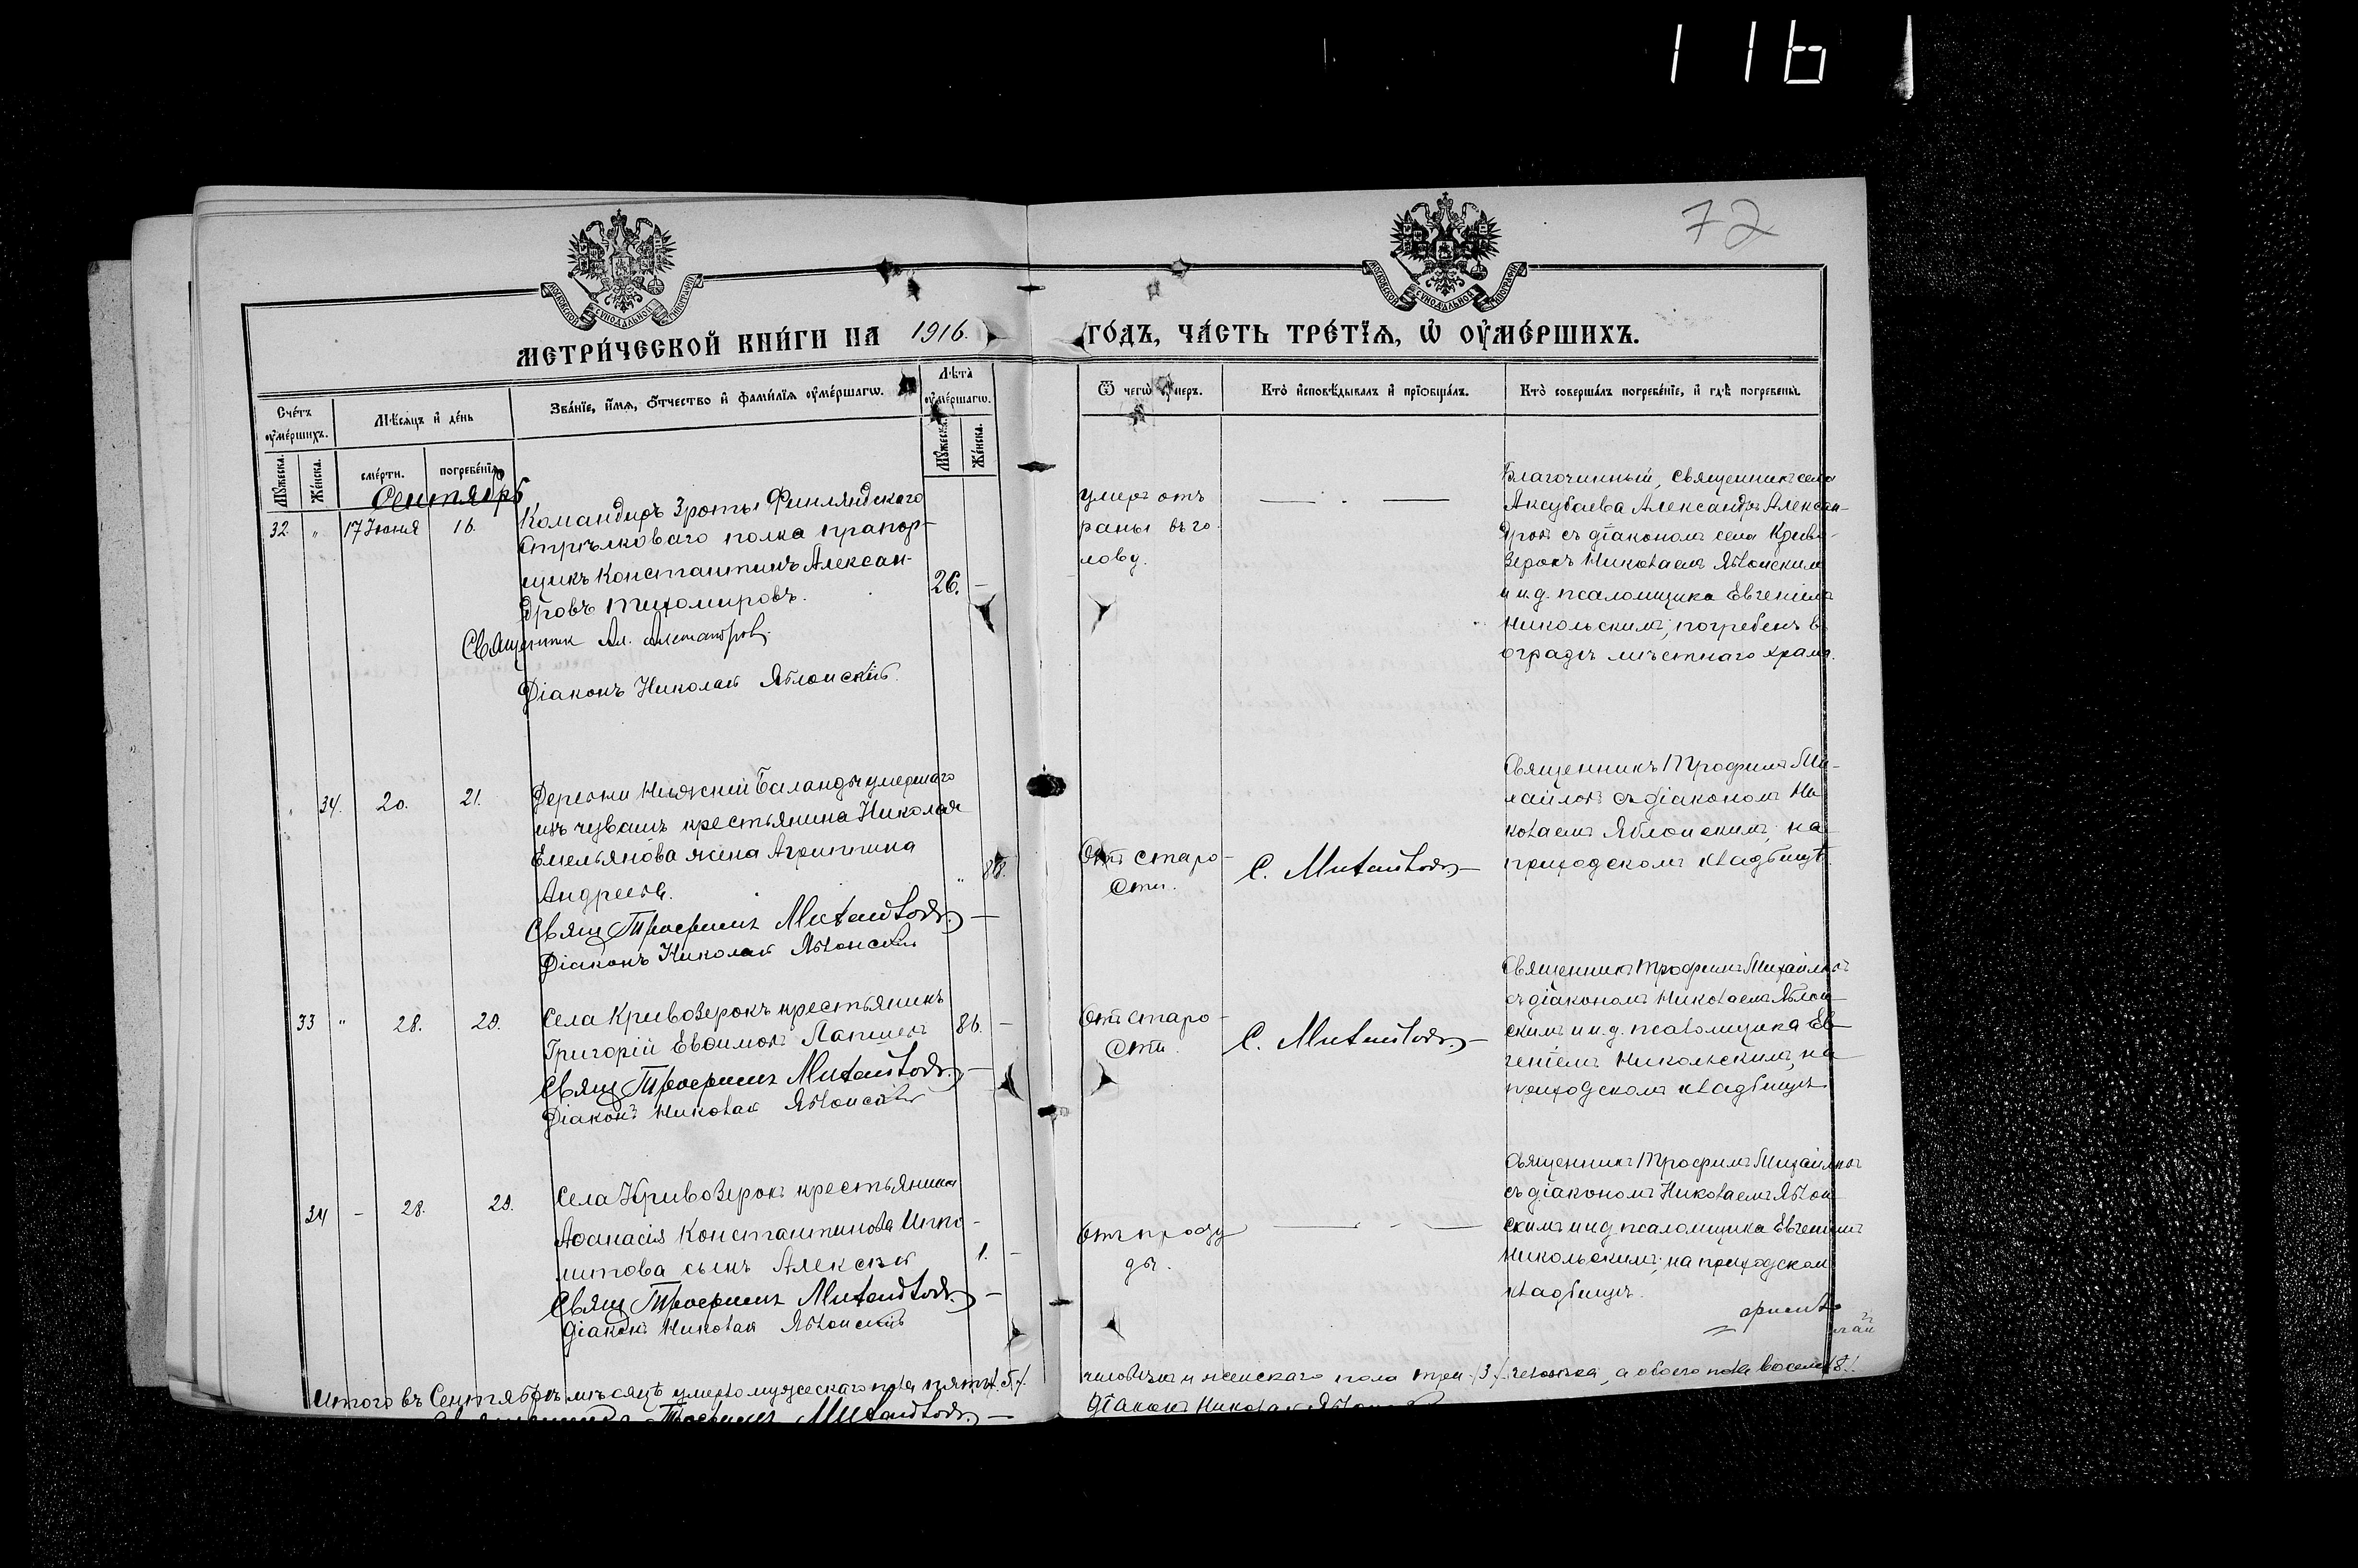 116
72
МОСКОВСКОЙ СѴНОДАЛЬНОЙ ТИПОГРАФІИ
МОСКОВСКОЙ СѴНОДАЛЬНОЙ ТИПОГРАФІИ
МЕТРИ́ЧЕСКОЙ КНИ́ГИ НА 1916. ГО́ДЪ, ЧА́СТЬ ТРЕ́ТЇѦ, Ѡ҆ ОУ҆МЕ́РШИХЪ.
Сче́тъ оу҆ме́ршихъ.
Мꙋ́жеска.
Же́нска.
Мѣ́сѧцъ и҆ де́нь
сме́рти.
погребе́нїѧ
Зва́нїе, и҆́мѧ, ѻ҆́тчество и҆ фами́лїѧ оу҆ме́ршагѡ.
Лѣ́та оу҆ме́ршагѡ.
Мꙋ́жеска.
Же́нска.
Ѿ чегѡ̀ оу҆́меръ.
Кто̀ и҆сповѣ́дывалъ и҆ прїѻбща́лъ.
Кто̀ соверша́лъ погребе́нїе, и҆ гдѣ̀ погребены̀.
Сентябрь
32. " 17 Іюня 16.
Командиръ 3 роты Финляндскаго
стрѣлковаго полка прапор-
щикъ Константинъ Алексан-
дровъ Тихомировъ.
26. -
Священник Ал. Александров.
Діаконъ Николай Яблонскій.
умеръ отъ
раны въ го-
лову.
Благочинный, священникъ села
Аксубаева Александръ Алексан-
дровъ съ діакономъ села Криво-
зерокъ Николаемъ Яблонскимъ
и и. д. псаломщика Евгеніемъ
Никольскимъ; погребенъ въ
оградѣ мѣстнаго храма.
" 34. 20. 21.
Деревни Нижней Баланды умершаго
изъ чувашъ крестьянина Николая
Емельянова жена Агриппина
Андреева.
" 88.
Свящ Трофимъ Михайловъ
Діаконъ Николай Яблонскій
Отъ старо-
сти.
С. Михайловъ
Священникъ Трофимъ Ми-
хайловъ съ діакономъ Ни-
колаемъ Яблонскимъ; на
приходскомъ кладбищѣ
33 " 28. 29.
Села Кривозерокъ крестьянинъ
Григорій Евѳимовъ Лапшевъ
86. -
Свящ Трофимъ Михайловъ
Діаконъ Николай Яблонскій
Отъ старо-
сти.
С. Михайловъ
Священникъ Трофимъ Михайловъ
съ діакономъ Николаемъ Яблон-
скимъ и и. д. псаломщика Ев-
геніемъ Никольскимъ, на
приходскомъ кладбищѣ
34 - 28. 29.
Села Кривозерокъ крестьянина
Аѳанасія Константинова Иппо-
литова сынъ Алексѣй
1. -
Свящ Трофимъ Михайловъ
Діаконъ Николай Яблонскій
Отъ просту
ды.
Священникъ Трофимъ Михайловъ
съ діакономъ Николаемъ Яблон-
скимъ и и д псаломщика Евгеніемъ
Никольскимъ; на приходскомъ
кладбищѣ.
Итого въ Сентябрѣ мѣсяцѣ умерло мужескаго пола пять /5/. человѣкъ и женскаго пола три /3/ человѣка, а обоего пола восемь /8/.
Трофимъ Михайловъ
Діаконъ Николай